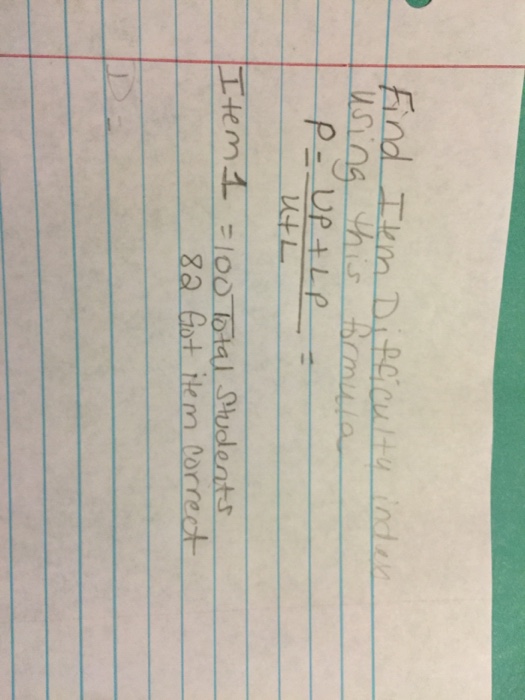 Find Item Difficulty index
using this formula
P = Up + Lp =
U+L
Item 1 = 100 Total Students
82 Got item correct
D =